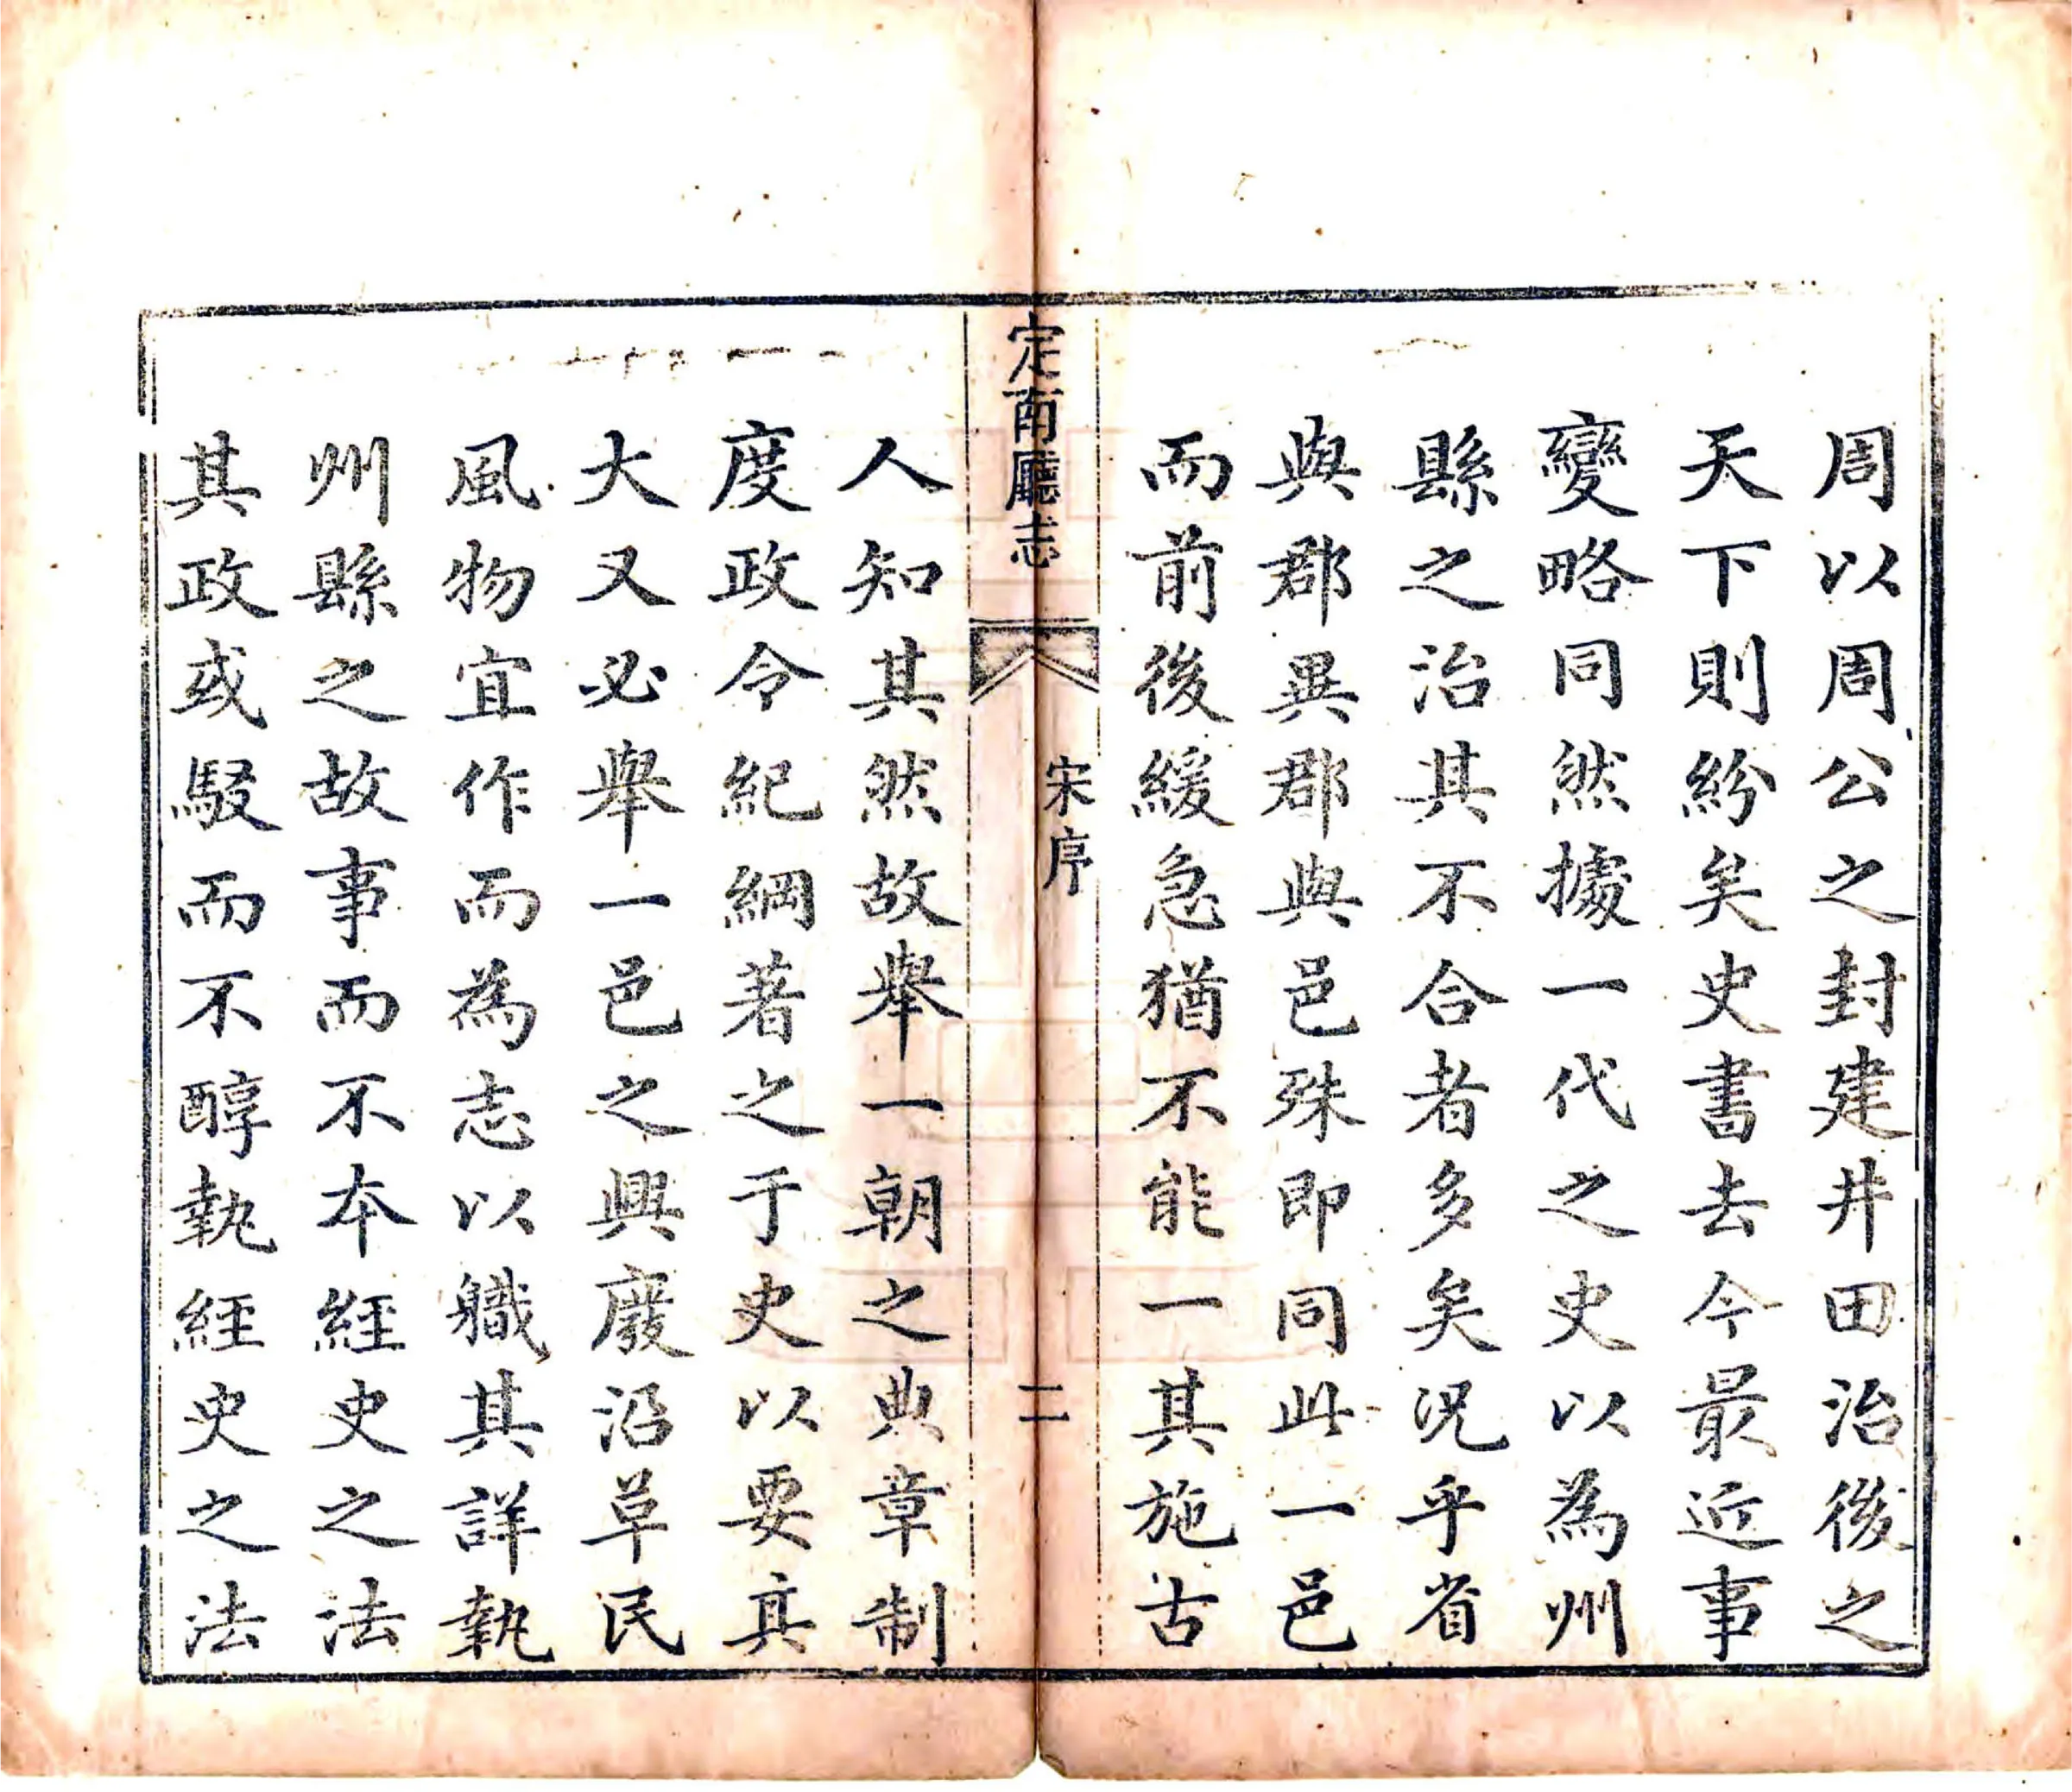 周以周公之封建井田治後之
天下則紛矣史書去今最近事
變略同然據一代之史以為州
縣之治其不合者多矣况乎省
與郡異郡與邑殊即同此一邑
而前後緩急猶不能一其施古
定南廳志
宋序
二
人知其然故舉一朝之典章制
度政令紀綱著之于史以要其
大又必舉一邑之興廢沿草民
風物宜作而為志以職其詳執
州縣之故事而不本經史之法
其政或駁而不醇執經史之法